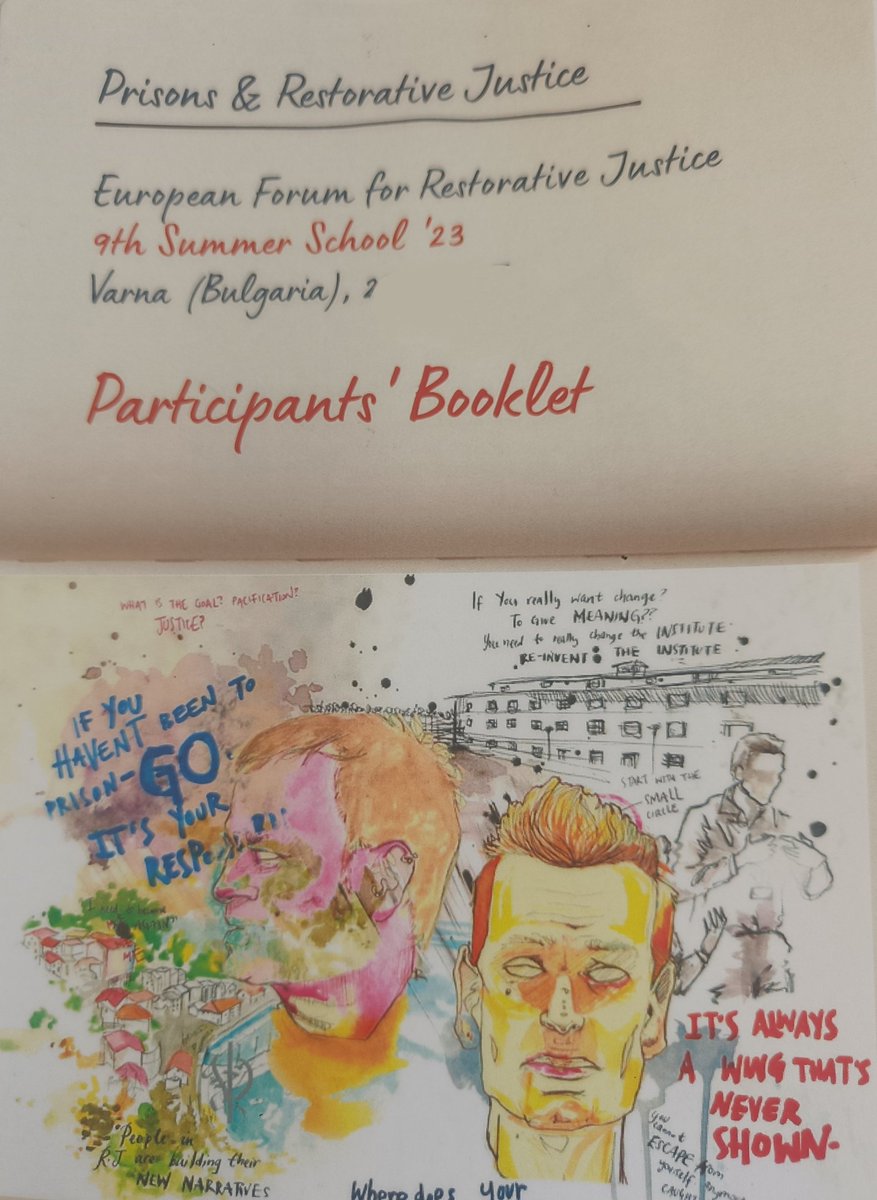 Prisons & Restorative Justice
European Forum for Restorative Justice
9th Summer School '23
Varna (Bulgaria), 2
Participants' Booklet
WHAT IS THE GOAL? PACIFICATION?
JUSTICE?
If You really want change?
To Give MEANING??
You need to really change the INSTITUTE-
RE-INVENT THE INSTITUTE
IF YOU
HAVENT BEEN TO
PRISON-GO.
IT'S YOUR
START WITH THE
SMALL
CIRCLE
IT'S ALWAYS
A WING THAT'S
NEVER
SHOWN-
you
cannot
ESCAPE from
yourself anymore
CAUGHT
"People in
R.J. are building their
NEW NARRATIVES
Where does your